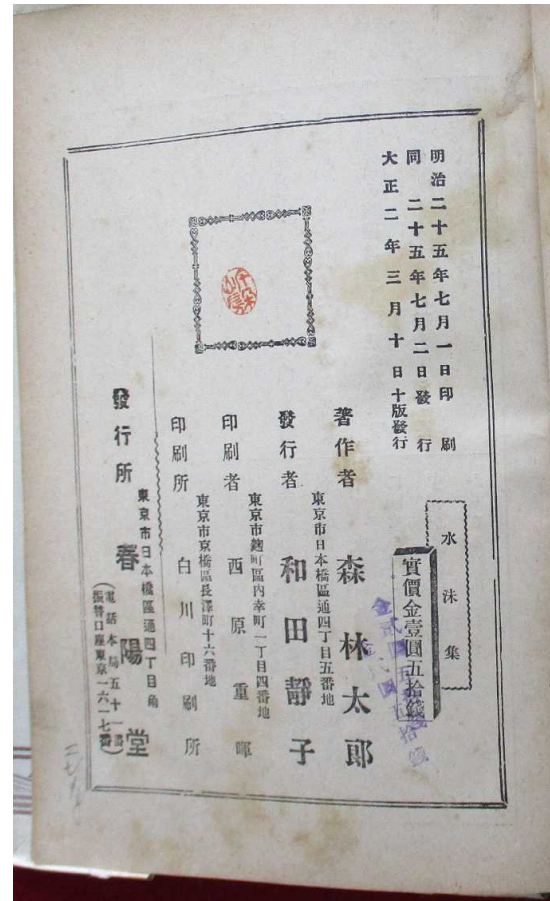 明治二十五年七月一日印刷
同 二十五年七月二日發行
大正二年三月十日十版發行
水沫集
實價金壹圓五拾錢
著作者 森林太郎
東京市日本橋區通四丁目五番地
發行者 和田靜子
東京市麴町區內幸町一丁目四番地
印刷者 西原重暉
東京市京橋區長澤町十六番地
印刷所 白川印刷所
東京市日本橋區通四丁目角
發行所 春陽堂
(電話本局五十一番
振替口座東京一六一七番)